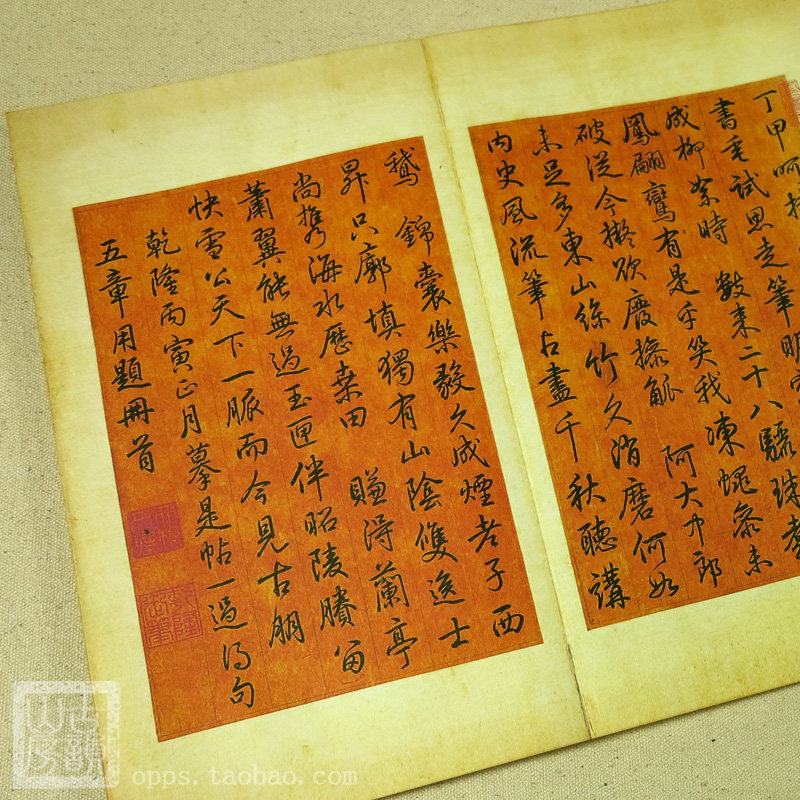 丁甲呵
書毫試思走筆明
成柳絮時 數来二十八驪珠
鳳翩鸞有是乎笑我凍蠅參未
破從今擬欲廢操觚 阿大中郎
未足多東山絲竹久消磨何如
内史風流筆占盡千秋聽講
鵝 錦囊樂毅久成煙老子西
昇只廓填獨有山陰雙逸士
尚携海水歷桑田 賺得蘭亭
蕭翼能無過玉匣伴昭陵賸留
快雪公天下一脈而今見古朋
乾隆丙寅正月摹是帖一過得句
五章用題冊首
opps.taobao.com